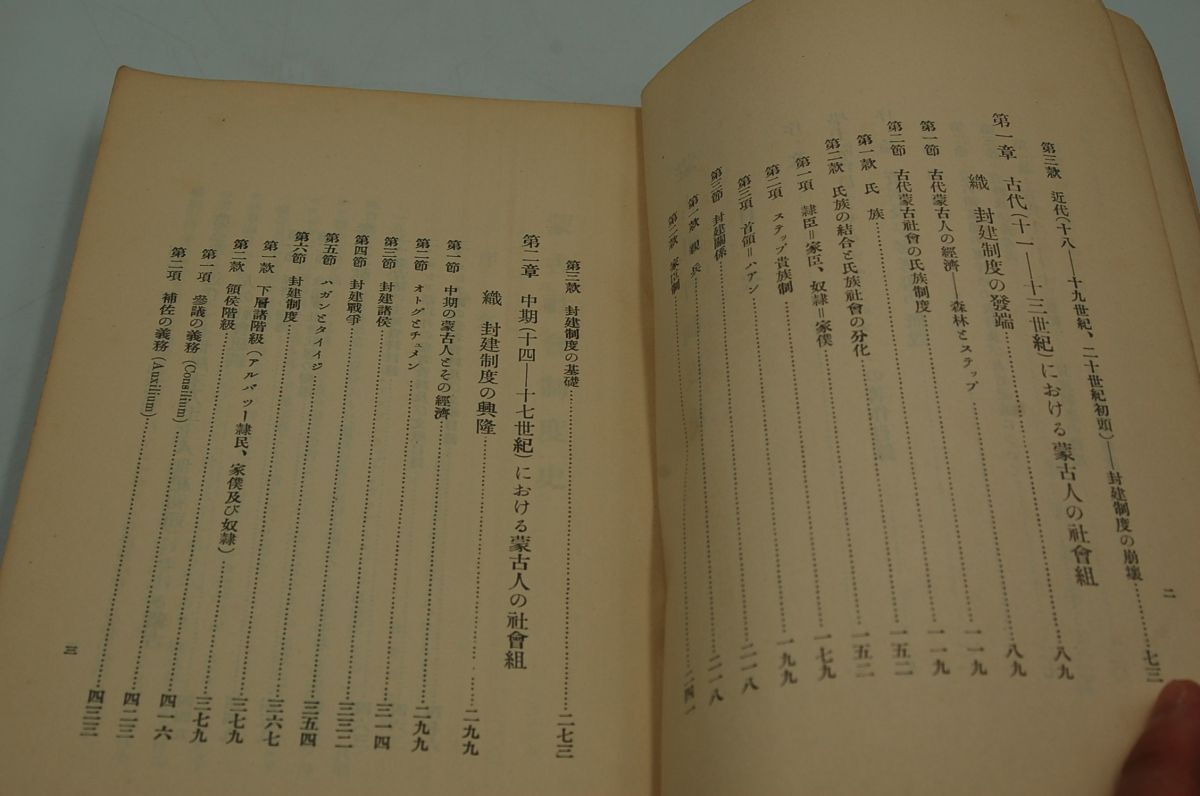 第三款 近代(十八――十九世紀、二十世紀初頭)――封建制度の崩壞…七三
第一章 古代(十一――十三世紀)における蒙古人の社會組
織 封建制度の發端…八九
第一節 古代蒙古人の經濟――森林とステップ…八九
第二節 古代蒙古社會の氏族制度…一一九
第一款 氏族…一一九
第二款 氏族の結合と氏族社會の分化…一五二
第一項 隷臣=家臣、奴隷=家僕…一五二
第二項 ステップ貴族制…一七九
第三項 首領=ハアン…一九九
第三節 封建關係…二一八
第一款 親兵…二一八
第二款 家臣制…二四一
二
第三款 封建制度の基礎…二七三
第二章 中期(十四――十七世紀)における蒙古人の社會組
織 封建制度の興隆…二九九
第一節 中期の蒙古人とその經濟…二九九
第二節 オトグとチュメン
第三節 封建諸侯…三一四
第四節 封建戰爭…三三二
第五節 ハガンとタイイジ…三五四
第六節 封建制度…三六七
第一款 下層諸階級(アルバッー隷民、家僕及び奴隷)…三七九
第二款 領侯階級…三七九
第一項 參議の義務(Consilium)…四一六
第二項 補佐の義務(Auxilium)…四二三
四三三
三